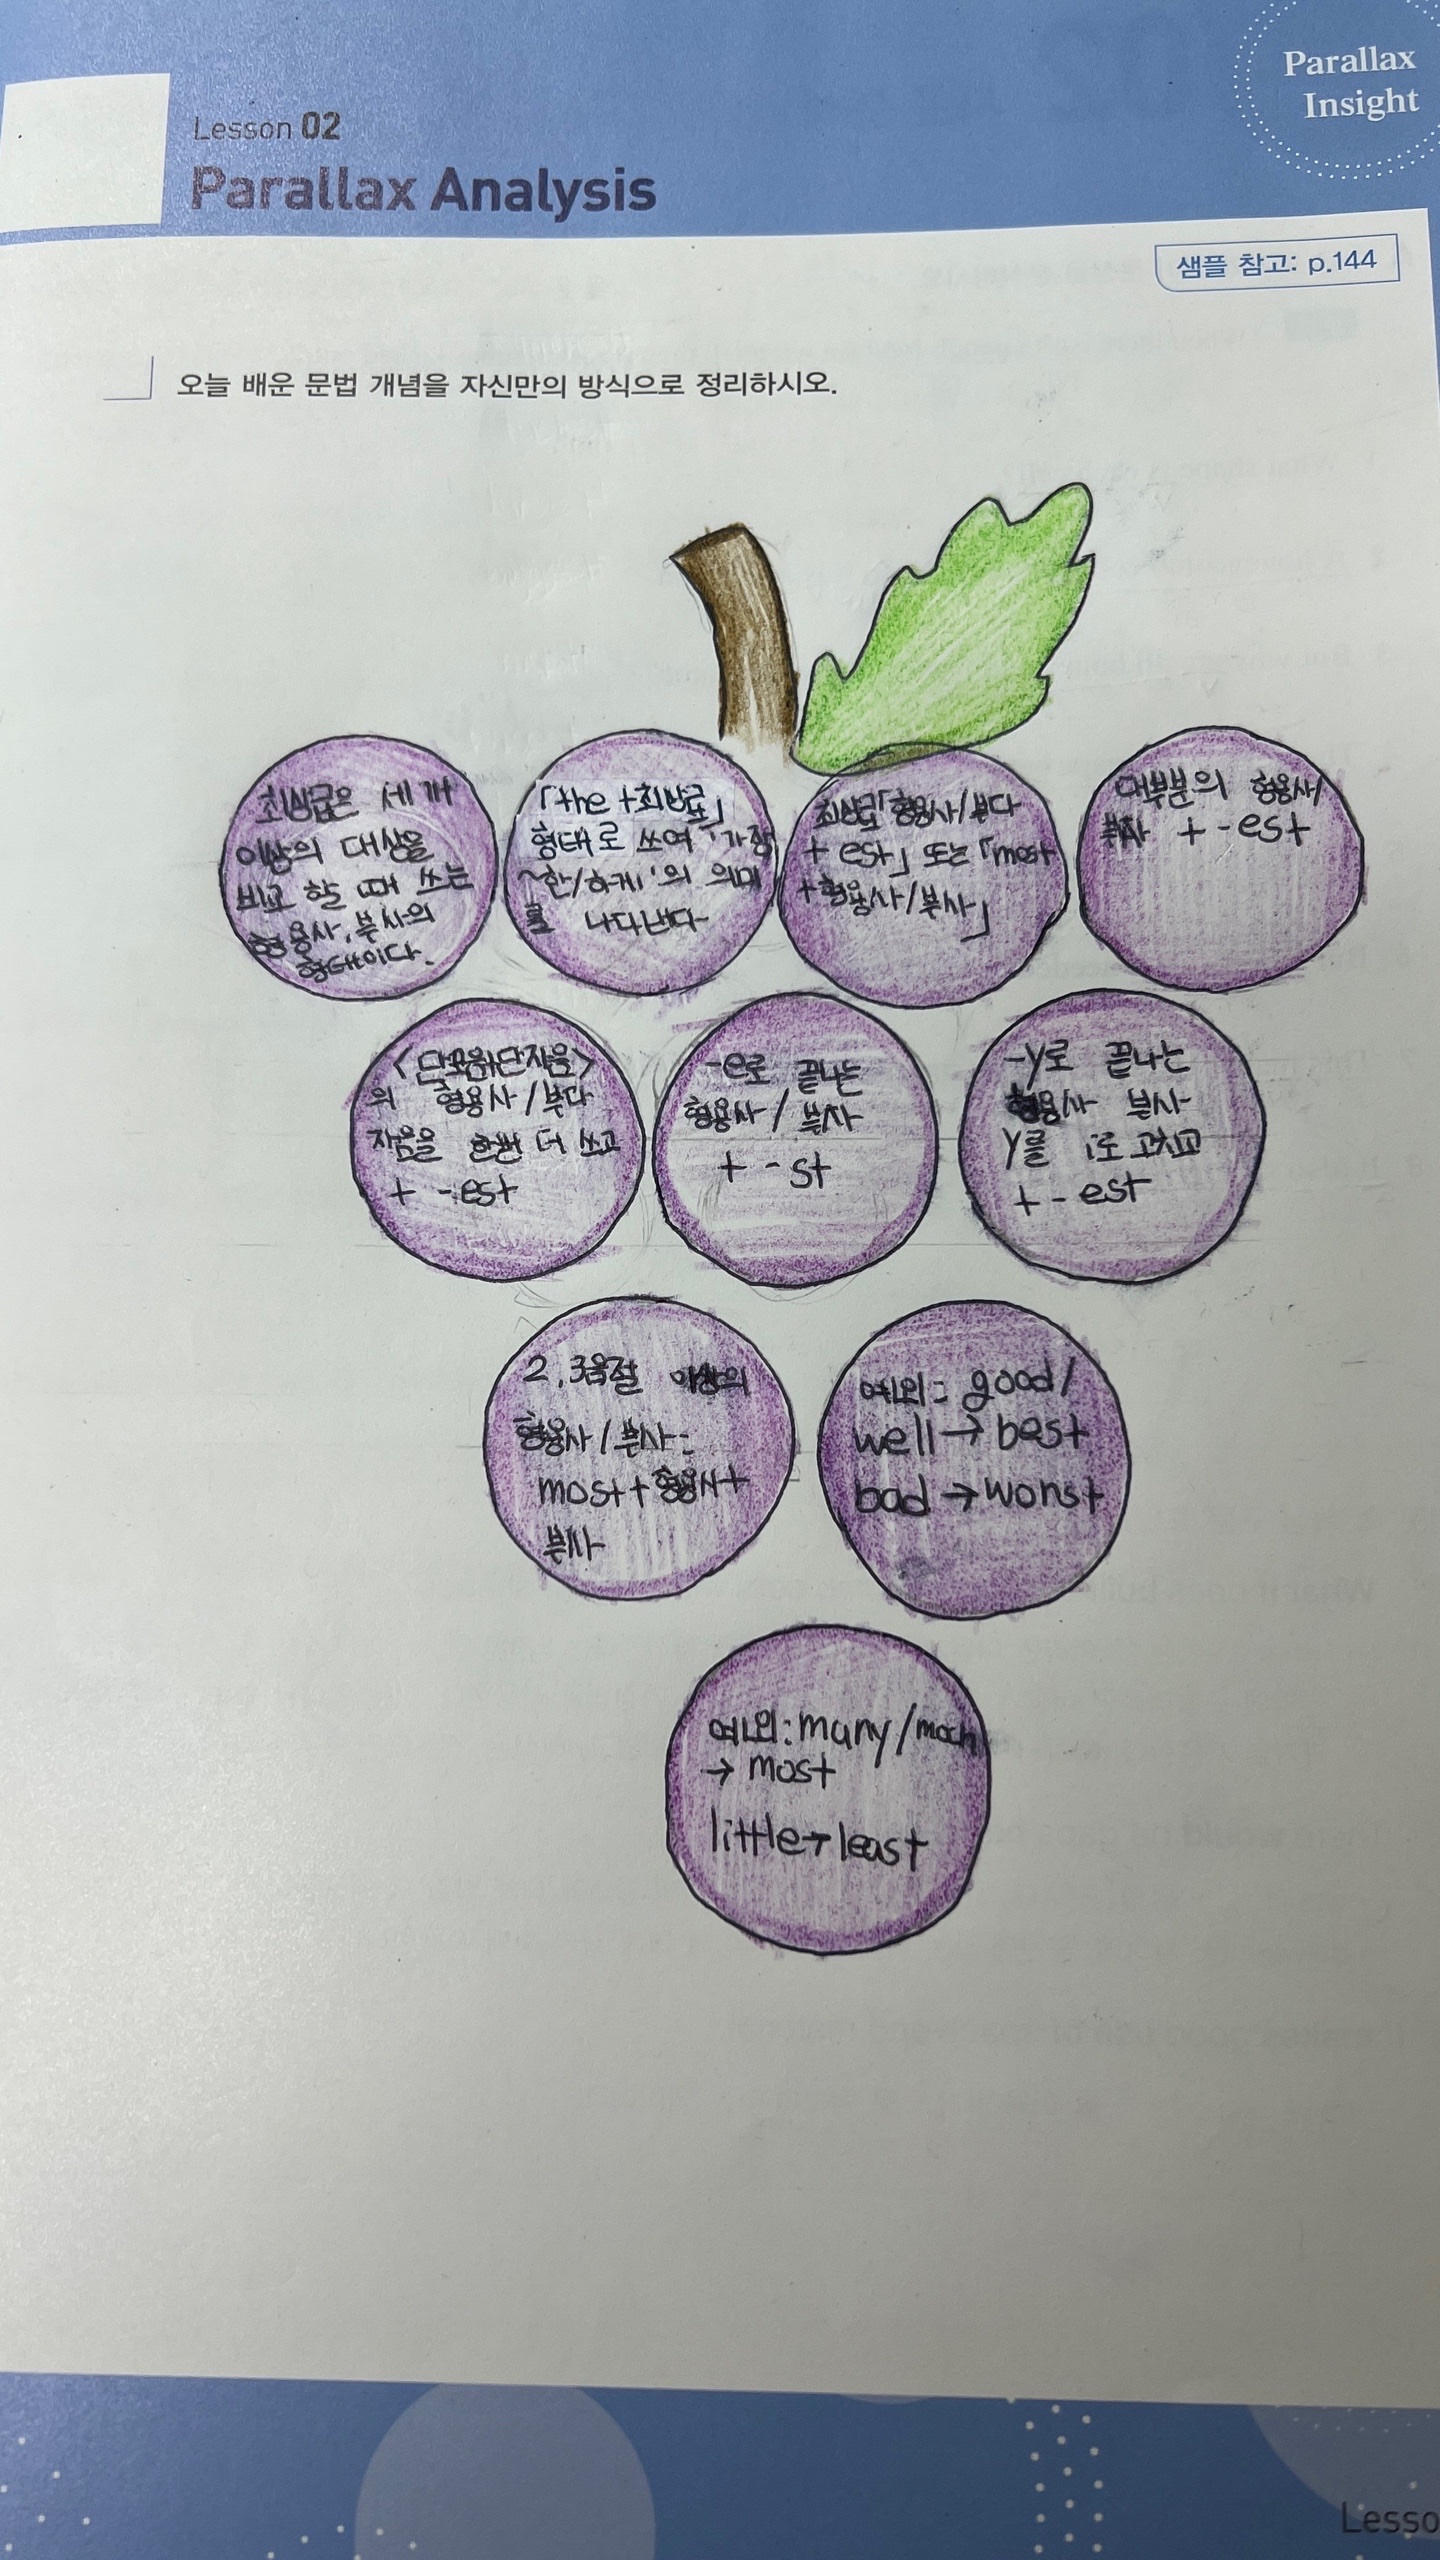 Parallax
Insight
Lesson 02
Parallax Analysis
샘플 참고: p.144
오늘 배운 문법 개념을 자신만의 방식으로 정리하시오.
최상급은 세 개
이상의 대상을
비교 할 때 쓰는
형용사, 부사의
형태이다.
「the +최상급」
형태로 쓰여 '가장
~한/하게'의 의미
를 나타낸다
최상급「형용사/부다
+ est」 또는 「most
+형용사/부사」
대부분의 형용사/
부사 + -est
<단모음+단자음>
위 형용사/부다
자음을 한번 더 쓰고
+ -est
-e로 끝나는
형용사 / 부사
+ -st
-y로 끝나는
형용사 부사
y를 i로 고치고
+ - est
2,3음절 이상의
형용사/부사:
most+형용사+
부사
예외: good/
well → best
bad → worst
예외: many/moch
→ most
little→least
Lesso